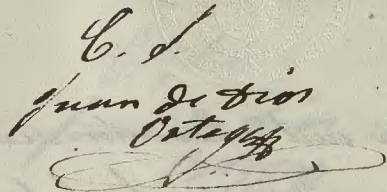 C. S.
Juan de Dios
Ortega